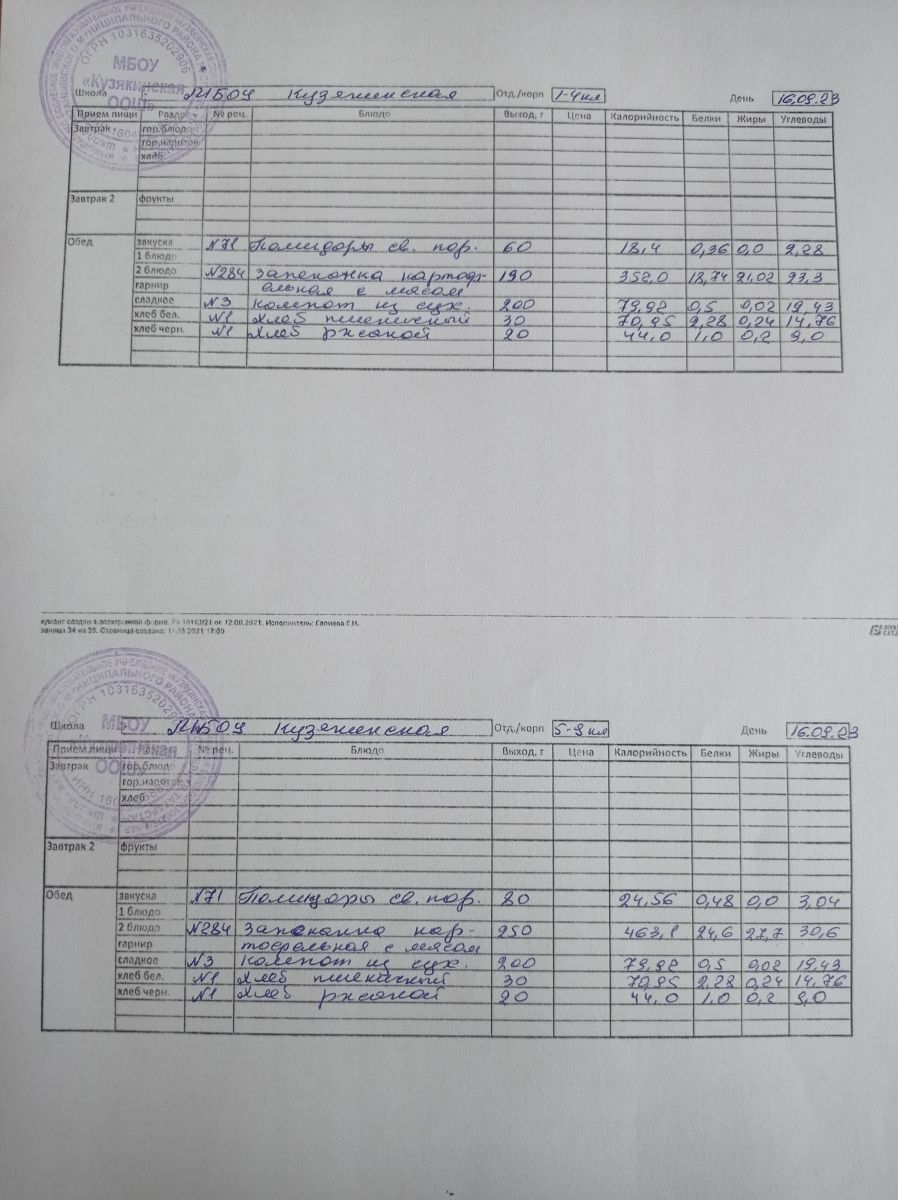 ОГРН 1031635202906
МБОУ
«Кузякинская
ООШ»
Школа МБОУ Кузякинская Отд./корп 1-4 кл День 16.09.23
Прием пищи Раздел № рец. Блюдо Выход, г Цена Калорийность Белки Жиры Углеводы
Завтрак гор.блюдо
гор.напиток
хлеб
Завтрак 2 фрукты
Обед закуска №71 Помидоры св. пор. 60 18,4 0,36 0,0 2,28
1 блюдо
2 блюдо №284 Запеканка картоф- 190 352,0 18,74 21,02 23,3
гарнир ельная с мясом
сладкое №3 Компот из сух. 200 79,98 0,5 0,02 19,43
хлеб бел. №1 Хлеб пшеничный 30 70,95 2,28 0,24 14,76
хлеб черн. №1 Хлеб ржаной 20 44,0 1,0 0,2 9,0
от 12.08.2021. Исполнитель: Гасиева Г.Н.
34 из 35. Страница создана: 11.08.2021 17:00
ОГРН 1031635202906
МБОУ
ООШ»
Школа МБОУ Кузякинская Отд./корп 5-9 кл День 16.09.23
Прием пищи Раздел № рец. Блюдо Выход, г Цена Калорийность Белки Жиры Углеводы
Завтрак гор.блюдо
гор.напиток
хлеб
Завтрак 2 фрукты
Обед закуска №71 Помидоры св. пор. 80 24,56 0,48 0,0 3,04
1 блюдо
2 блюдо №284 Запеканка кар- 250 463,1 24,6 27,7 30,6
гарнир тофельная с мясом
сладкое №3 Компот из сух. 200 79,98 0,5 0,02 19,43
хлеб бел. №1 Хлеб пшеничный 30 70,95 2,28 0,24 14,76
хлеб черн. №1 Хлеб ржаной 20 44,0 1,0 0,2 9,0